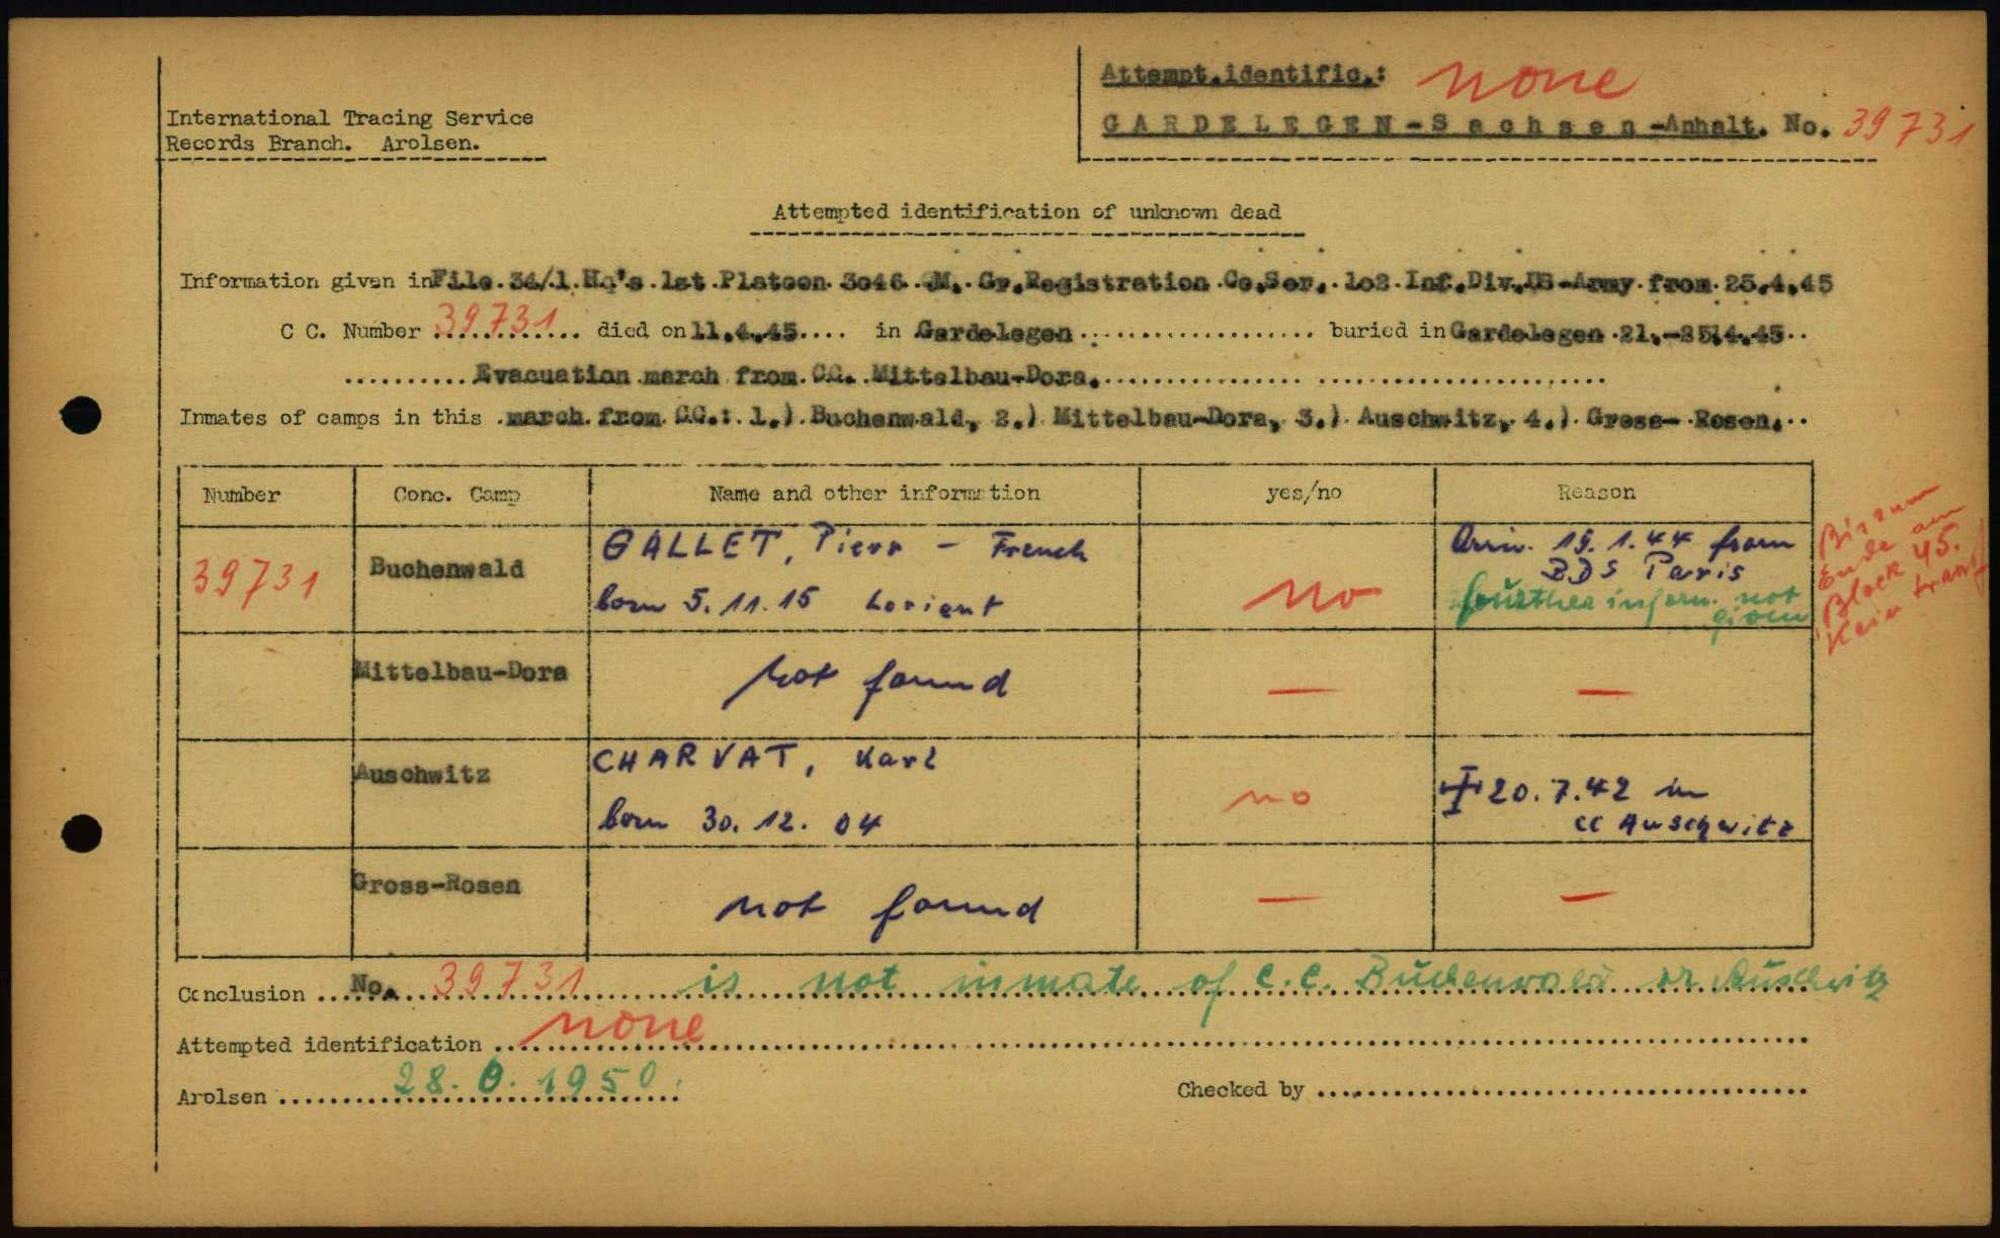 International Tracing Service
Records Branch. Arolsen.
Attempt.identific.: none
GARDELEGEN-Sachsen-Anhalt. No. 39731
Attempted identification of unknown dead
Information given in File. 34/1. Hq's. 1st. Platoon. 3o46. QM. Gr.Registration Co.Ser. 1o2 Inf.Div.US-Army from 25.4.45
C C. Number 39731 died on 11.4.45.... in Gardelegen buried in Gardelegen 21.-25.4.45..
Evacuation march from CC. Mittelbau-Dora.
Inmates of camps in this march from CC.: 1.) Buchenwald, 2.) Mittelbau-Dora, 3.) Auschwitz, 4.) Gross-Rosen.
Number Conc. Camp Name and other information yes/no Reason
39731 Buchenwald GALLET, Pierr - French
born 5.11.15 Lorient no
Arriv. 19.1.44 from
BDS Paris
fourther inform. not
given
Bis zum
Ende am
Block 45.
Kein transf
Mittelbau-Dora not found — —
Auschwitz CHARVAT, Karl
born 30.12.04 no
20.7.42 in
CC Auschwitz
Gross-Rosen not found — —
Conclusion No. 39731 is not inmate of C.C. Buchenwald or Auschwitz
Attempted identification none
Arolsen 28. 1950.
Checked by